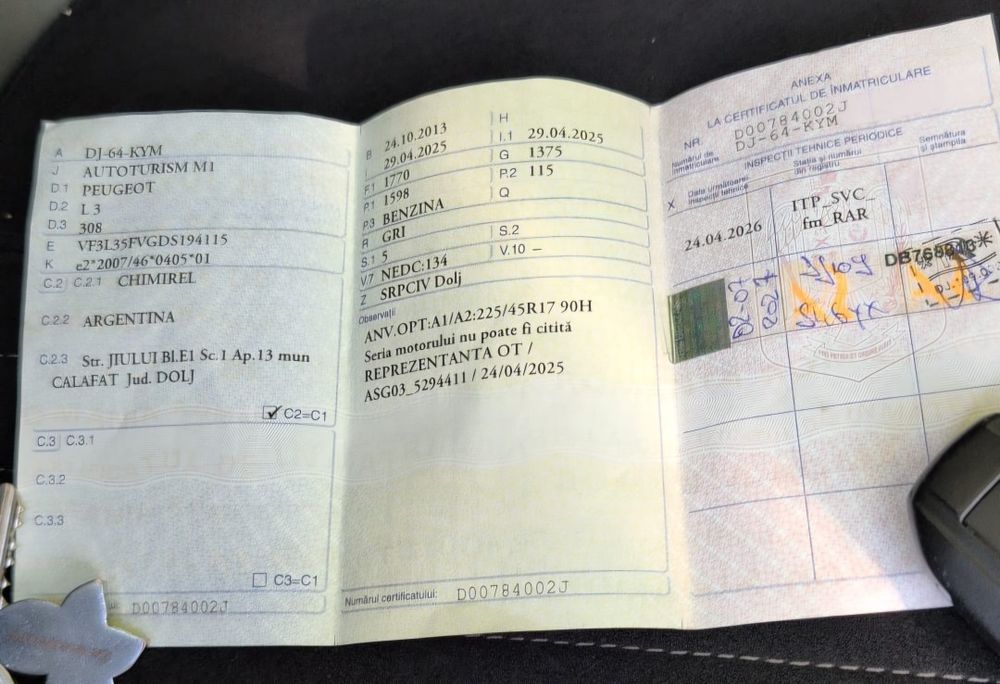 A DJ-64-KYM
J AUTOTURISM M1
D.1 PEUGEOT
D.2 L 3
D.3 308
E VF3L35FVGDS194115
K e2*2007/46*0405*01
C.2 C.2.1 CHIMIREL
C.2.2 ARGENTINA
C.2.3 Str. JIULUI Bl.E1 Sc.1 Ap.13 mun
CALAFAT Jud. DOLJ
C2=C1
C.3 C.3.1
C.3.2
C.3.3
C3=C1
D00784002J
B 24.10.2013 H
I 29.04.2025 I.1 29.04.2025
F.1 1770 G 1375
P.1 1598 P.2 115
P.3 BENZINA Q
R GRI
S.1 5 S.2
V.7 NEDC:134 V.10 –
Z SRPCIV Dolj
Observații
ANV.OPT:A1/A2:225/45R17 90H
Seria motorului nu poate fi citită
REPREZENTANTA OT /
ASG03_5294411 / 24/04/2025
Numărul certificatului: D00784002J
ANEXA
LA CERTIFICATUL DE ÎNMATRICULARE
NR. D00784002J
Numărul de înmatriculare DJ-64-KYM
INSPECȚII TEHNICE PERIODICE
X Data următoarei inspecții tehnice Stația și numărul din registru Semnătura și ștampila
24.04.2026 ITP_SVC_
fm_RAR
02-07
2027